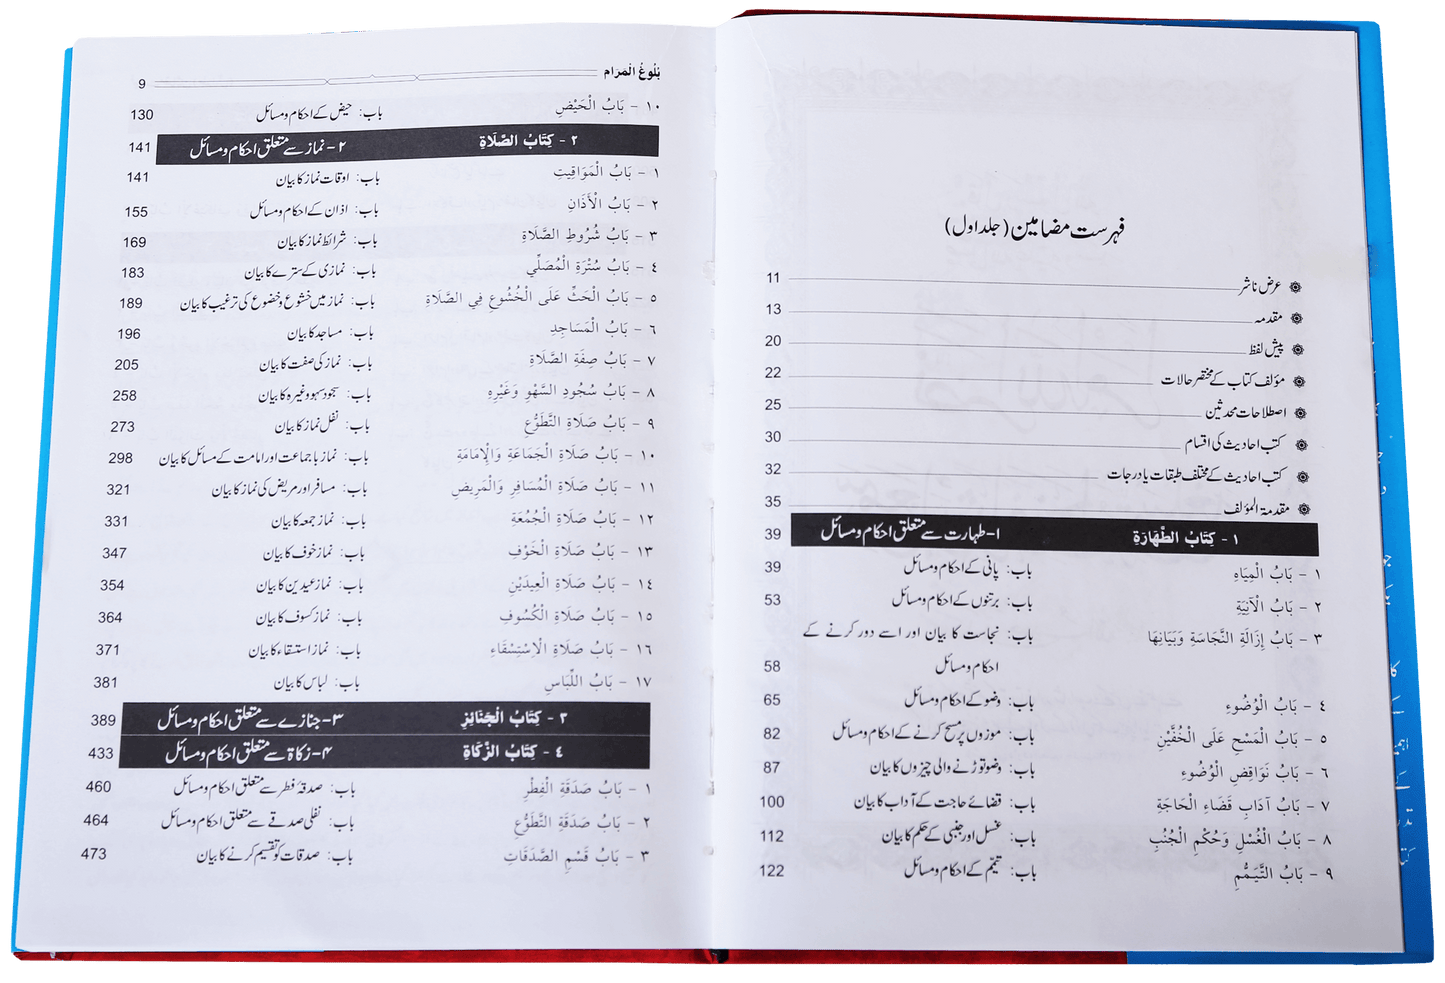 فہرست مضامین (جلد اول)
عرض ناشر 11
مقدمہ 13
پیش لفظ 20
مؤلف کتاب کے مختصر حالات 22
اصطلاحات محدثین 25
کتب احادیث کی اقسام 30
کتب احادیث کے مختلف طبقات یا درجات 32
مقدمة المؤلف 35
١ - كِتَابُ الطَّهَارَةِ ۱- طہارت سے متعلق احکام و مسائل 39
١ - بَابُ الْمِيَاهِ باب: پانی کے احکام و مسائل 39
٢ - بَابُ الْآنِيَةِ باب: برتنوں کے احکام و مسائل 53
٣ - بَابُ إِزَالَةِ النَّجَاسَةِ وَبَيَانِهَا باب: نجاست کا بیان اور اسے دور کرنے کے
احکام و مسائل 58
٤ - بَابُ الْوُضُوءِ باب: وضو کے احکام و مسائل 65
٥ - بَابُ الْمَسْحِ عَلَى الْخُفَّيْنِ باب: موزوں پر مسح کرنے کے احکام و مسائل 82
٦ - بَابُ نَوَاقِضِ الْوُضُوءِ باب: وضو توڑنے والی چیزوں کا بیان 87
٧ - بَابُ آدَابِ قَضَاءِ الْحَاجَةِ باب: قضائے حاجت کے آداب کا بیان 100
٨ - بَابُ الْغُسْلِ وَحُكْمِ الْجُنُبِ باب: غسل اور جنبی کے حکم کا بیان 112
٩ - بَابُ التَّيَمُّمِ باب: تیمّم کے احکام و مسائل 122
بُلُوغُ الْمَرَام 9
١٠ - بَابُ الْحَيْضِ باب: حیض کے احکام و مسائل 130
٢ - كِتَابُ الصَّلَاةِ ۲- نماز سے متعلق احکام و مسائل 141
١ - بَابُ الْمَوَاقِيتِ باب: اوقات نماز کا بیان 141
٢ - بَابُ الْأَذَانِ باب: اذان کے احکام و مسائل 155
٣ - بَابُ شُرُوطِ الصَّلَاةِ باب: شرائط نماز کا بیان 169
٤ - بَابُ سُتْرَةِ الْمُصَلِّي باب: نمازی کے سترے کا بیان 183
٥ - بَابُ الْحَثِّ عَلَى الْخُشُوعِ فِي الصَّلَاةِ باب: نماز میں خشوع و خضوع کی ترغیب کا بیان 189
٦ - بَابُ الْمَسَاجِدِ باب: مساجد کا بیان 196
٧ - بَابُ صِفَةِ الصَّلَاةِ باب: نماز کی صفت کا بیان 205
٨ - بَابُ سُجُودِ السَّهْوِ وَغَيْرِهِ باب: سجود سہو وغیرہ کا بیان 258
٩ - بَابُ صَلَاةِ التَّطَوُّعِ باب: نفل نماز کا بیان 273
١٠ - بَابُ صَلَاةِ الْجَمَاعَةِ وَالْإِمَامَةِ باب: نماز با جماعت اور امامت کے مسائل کا بیان 298
١١ - بَابُ صَلَاةِ الْمُسَافِرِ وَالْمَرِيضِ باب: مسافر اور مریض کی نماز کا بیان 321
١٢ - بَابُ صَلَاةِ الْجُمُعَةِ باب: نماز جمعہ کا بیان 331
١٣ - بَابُ صَلَاةِ الْخَوْفِ باب: نماز خوف کا بیان 347
١٤ - بَابُ صَلَاةِ الْعِيدَيْنِ باب: نماز عیدین کا بیان 354
١٥ - بَابُ صَلَاةِ الْكُسُوفِ باب: نماز کسوف کا بیان 364
١٦ - بَابُ صَلَاةِ الْاِسْتِسْقَاءِ باب: نماز استسقاء کا بیان 371
١٧ - بَابُ اللِّبَاسِ باب: لباس کا بیان 381
٣ - كِتَابُ الْجَنَائِزِ ۳- جنازے سے متعلق احکام و مسائل 389
٤ - كِتَابُ الزَّكَاةِ ۴- زکاۃ سے متعلق احکام و مسائل 433
١ - بَابُ صَدَقَةِ الْفِطْرِ باب: صدقۂ فطر سے متعلق احکام و مسائل 460
٢ - بَابُ صَدَقَةِ التَّطَوُّعِ باب: نفلی صدقے سے متعلق احکام و مسائل 464
٣ - بَابُ قَسْمِ الصَّدَقَاتِ باب: صدقات کو تقسیم کرنے کا بیان 473